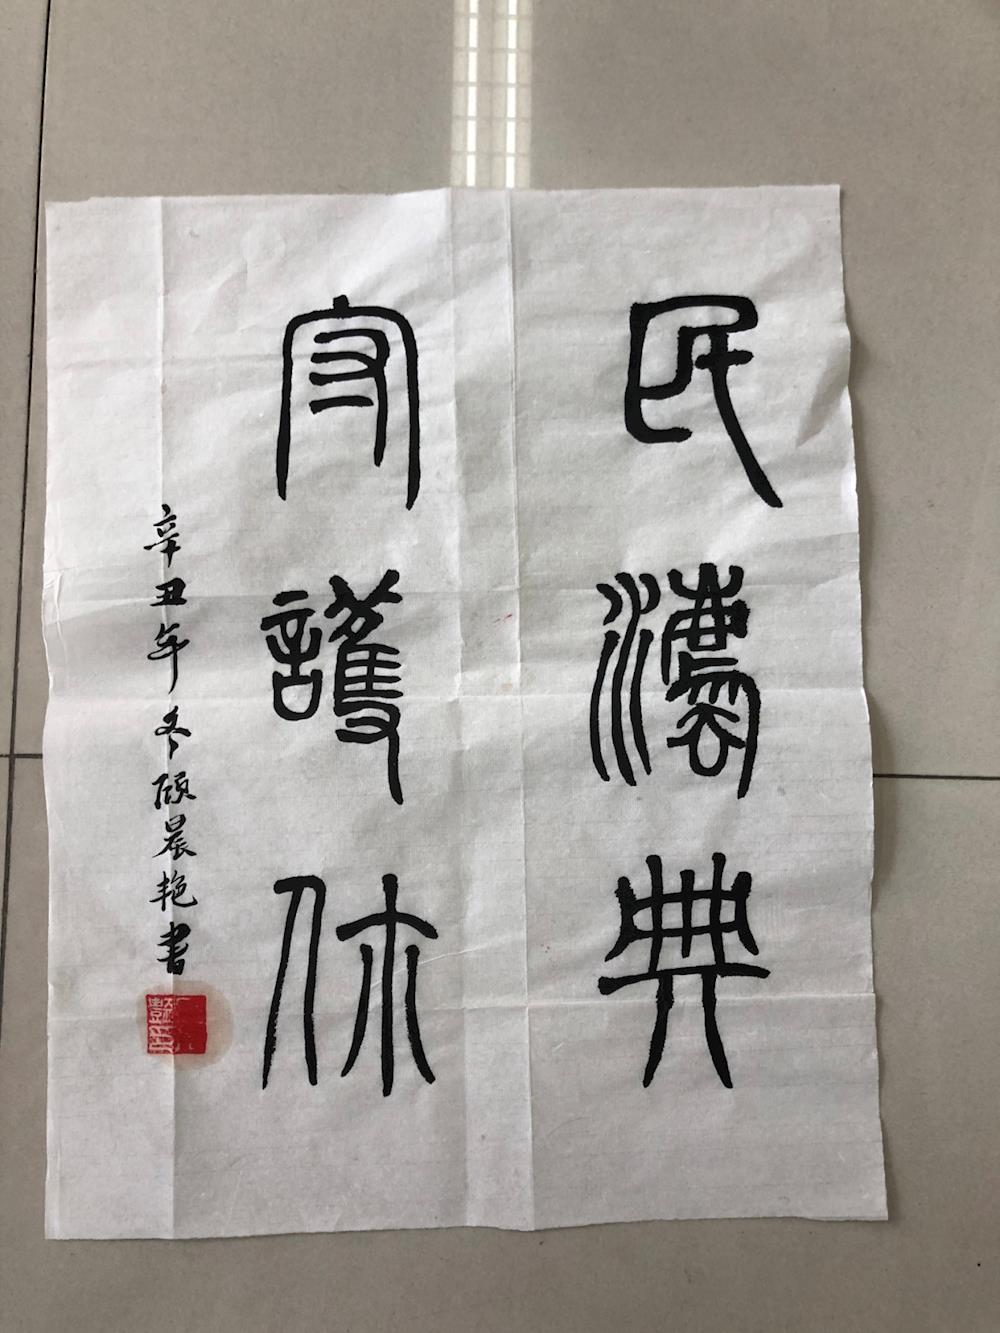 民灋典
守護你
辛丑年冬顾晨艳書